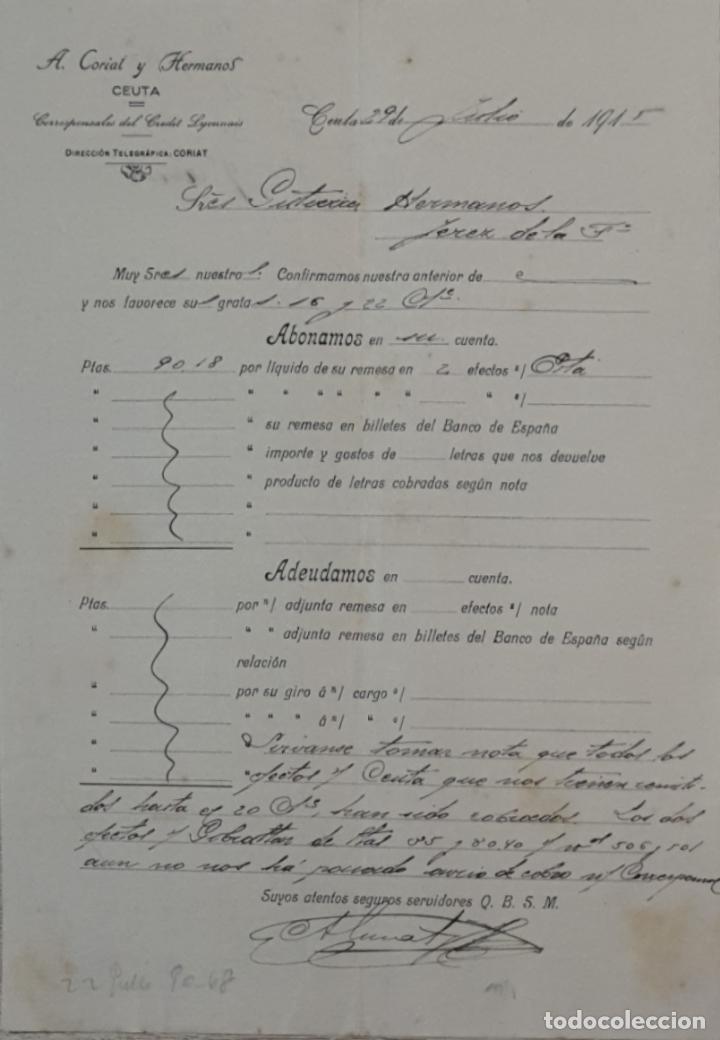 A. Coriat y Hermanos
CEUTA
Corresponsales del Credit Lyonnais
DIRECCIÓN TELEGRÁFICA: CORIAT
Ceuta 29 de Julio de 1915
Sres Gutierrez Hermanos.
Jerez de la Fa
Muy Sres nuestros: Confirmamos nuestra anterior de
y nos favorece su grata 16 y 22 Cte.
Abonamos en su cuenta.
Ptas. 90.18 por líquido de su remesa en 2 efectos s/ Pta
" " " " " " " " s/
" " su remesa en billetes del Banco de España
" " importe y gastos de letras que nos devuelve
" " producto de letras cobradas según nota
" "
" "
Adeudamos en cuenta.
Ptas. por n/ adjunta remesa en efectos s/ nota
" " " adjunta remesa en billetes del Banco de España según
relación
" por su giro á n/ cargo o/
" " " " á n/ " o/
" " Sirvanse tomar nota que todos los
" " efectos s/ Ceuta que nos tienen remiti-
dos hasta el 20 Cte, han sido cobrados. Los dos
efectos s/ Gibraltar de Ptas 85 y 80.40 nos 506 y 501
aun no nos há pasado aviso de cobro n/ Corresponsal
Suyos atentos seguros servidores Q. B. S. M.
22 Julio 90.68
todocoleccion